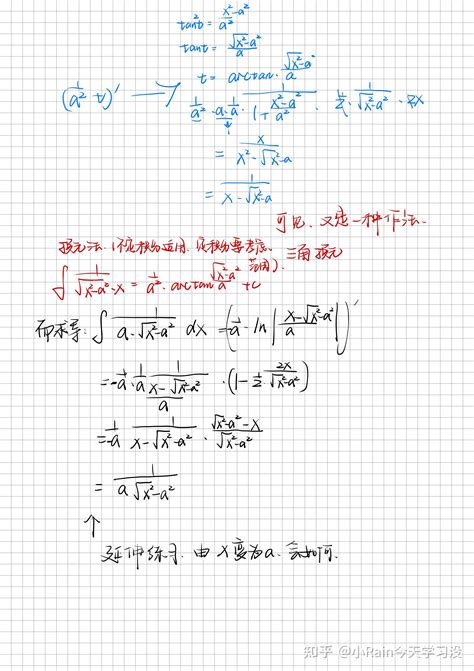 tan²t = x²-a²/a²
tant = √x²-a²/a
t = arctan √x²-a²/a
(1/a² t)' → 1/a² · a · 1/a · 1/(1+x²-a²/a²) · 1/2 · 1/√x²-a² · 2x
= x/x²-√x²-a
= 1/x-√x²-a
可见, 又是一种作法.
换元法 (不定积分适用, 定积分要考虑范围). 三角换元
∫ 1/√x²-a²·x = 1/a² · arctan √x²-a²/a + C
而求导: ∫ 1/a·√x²-a² dx = (-1/a · ln|x-√x²-a²/a|)'
= -1/a · 1/a · 1/(x-√x²-a²/a) · (1-1/2 2x/√x²-a²)
= -1/a 1/x-√x²-a² · √x²-a²-x/√x²-a²
= 1/a√x²-a²
↑
延伸练习, 由 x 变为 a, 会如何.
知乎 @小Rain今天学习没